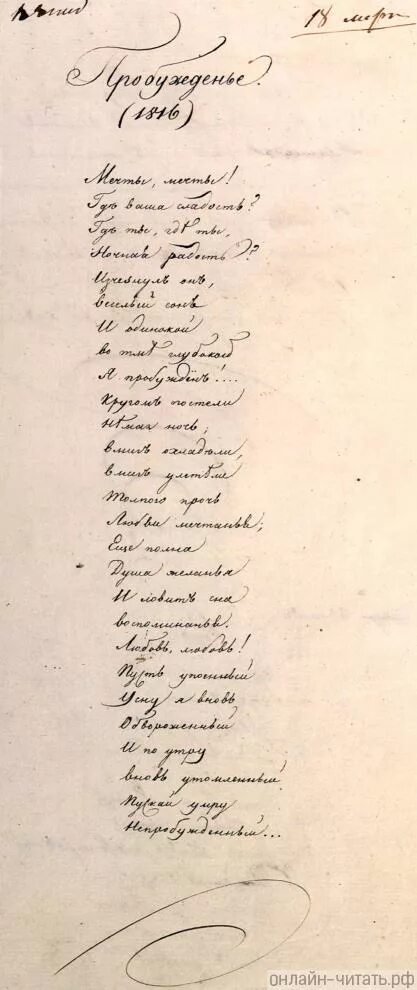 18 мар
Пробужденье.
(1816)
Мечты, мечты!
Гдѣ ваша сладость?
Гдѣ ты, гдѣ ты,
Ночная радость?
Изчезнулъ онъ,
веселый сонъ
И одинокой
во тмѣ глубокой
Я пробуждёнъ!...
Кругомъ постели
Нѣмая ночь;
вмигъ охладѣли,
вмигъ улетѣли
Толпою прочь
Любви мечтанья;
Еще полна
Душа желанья
И ловитъ сна
воспоминанья.
Любовь, любовь!
Пусть упоенный
Усну я вновь
Обвороженный
И по утру
вновь утомленный
Пускай умру
Непробужденный...
онлайн-читать.рф